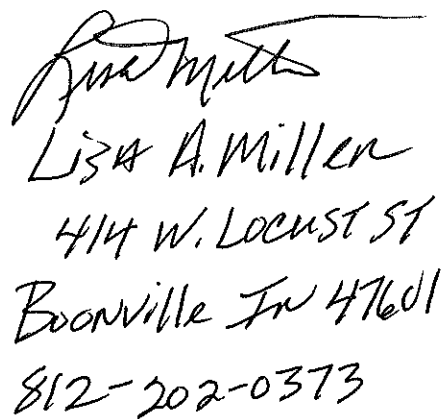 Lisa Miller
Lisa A. Miller
414 W. Locust St
Boonville In 47601
812-202-0373